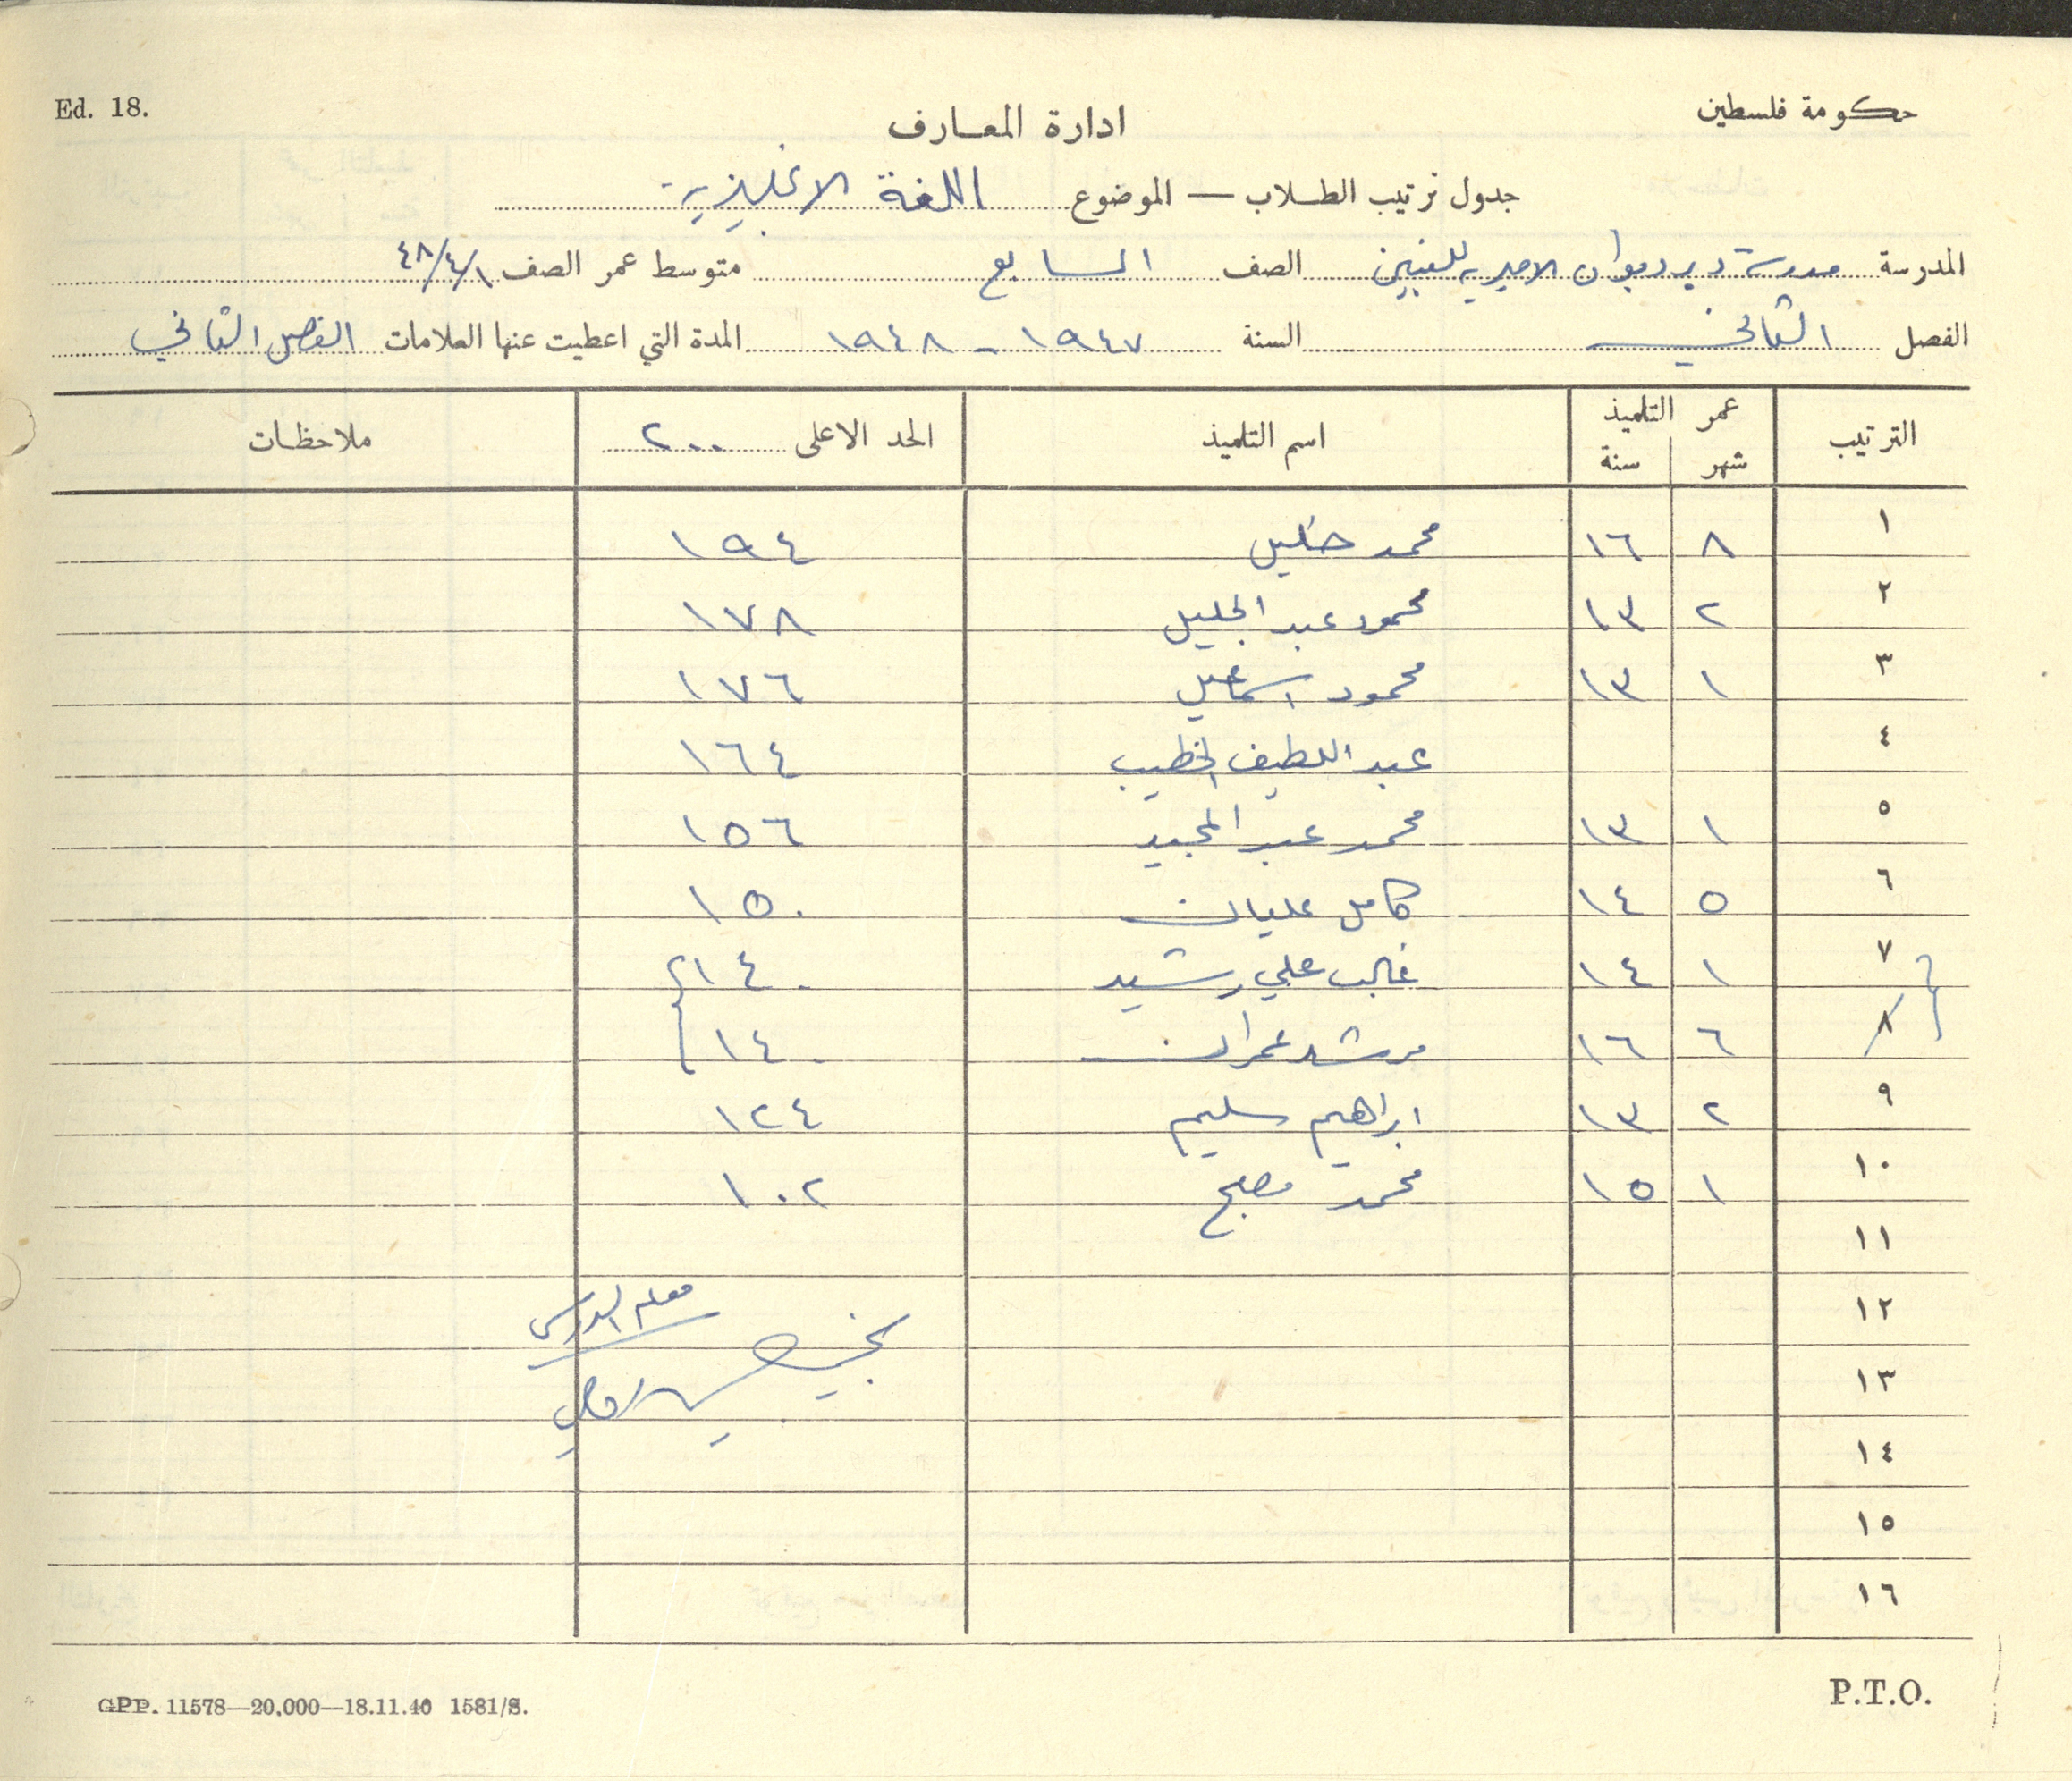 Ed. 18.
حكومة فلسطين
ادارة المعارف
جدول ترتيب الطلاب — الموضوع اللغة الانجليزية
المدرسة مدرسة دير ديوان الاميرية للبنين الصف السابع متوسط عمر الصف ٤٨/٤/١
الفصل الثاني السنة ١٩٤٧ - ١٩٤٨ المدة التي اعطيت عنها العلامات الفصل الثاني
الترتيب عمر التلميذ شهر سنة اسم التلميذ الحد الاعلى ٢٠٠ ملاحظات
١ ٨ ١٦ محمد خليل ١٩٤
٢ ٢ ١٣ محمود عبد الجليل ١٧٨
٣ ١ ١٣ محمود اسماعيل ١٧٦
٤ عبد اللطيف الخطيب ١٦٤
٥ ١ ١٣ محمد عبد المجيد ١٥٦
٦ ٥ ١٤ كامل عليان ١٥٠
٧ ١ ١٤ غالب علي رشيد ١٤٠
٨ ٦ ١٦ مرشد عمران ١٤٠
٩ ٢ ١٣ ابراهيم سليم ١٢٤
١٠ ١ ١٥ محمد مصلح ١٠٢
١١
١٢
معلم الدرس
١٣
١٤
١٥
١٦
GPP. 11578—20,000—18.11.40 1581/S.
P.T.O.